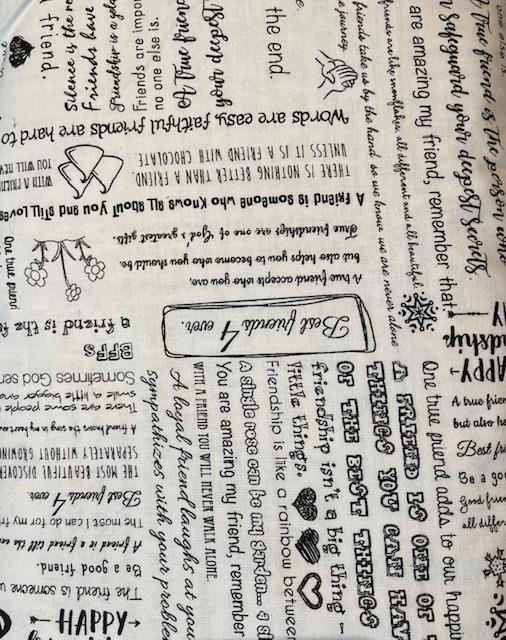 friend
Silence is the
Friends have
friendship is a
Friends are impor
no one else is.
the end.
e journey.
friends take us by the hand so we know we are never alone
friends are like snowflakes, all different and all beautiful.
are amazing my friend, remember that
n safeguard your deepest secrets.
True friend is the person who
one else is.
Words are easy, faithful friends are hard to
THERE IS NOTHING BETTER THAN A FRIEND,
UNLESS IT IS A FRIEND WITH CHOCOLATE
YOU WILL NEV
A friend is someone who knows all about you and still loves
True friendships are one of God's greatest gifts.
A true friend accepts who you are,
but also helps you become who you should be.
One true friend
a friend is the
Best friends 4 ever.
BFFs
Sometimes God sen
There are some people
smile a little bigger and
A friend knows the song in my heart
THE MOST BEAUTIFUL DISCOVER
SEPARATELY WITHOUT GROWING
Best friends 4 ever.
The most I can do for my fri
A friend is a friend till the
Be a good friend.
The friend is someone w
HAPPY
A loyal friend laughs at your
sympathizes with your problem
WITH A FRIEND YOU WILL NEVER WALK ALONE.
You are amazing my friend, remember
A single rose can be my garden... a si
Friendship is like a rainbow between
little things.
friendship isn't a big thing -
OF THE BEST THINGS
THINGS YOU CAN HAV
A FRIEND IS ONE OF
One true friend adds to our happi
ndship
HAPPY
A true frien
but also he
Best fri
Be a goo
Good frien
all differ